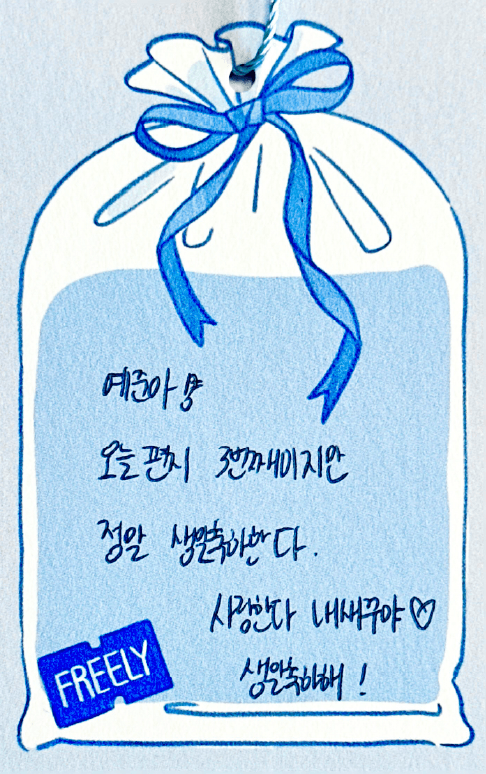 예준아 뿅
오늘 편지 3번째이지만
정말 생일축하한다.
사랑한다 내새꾸야♡
생일축하해!
FREELY